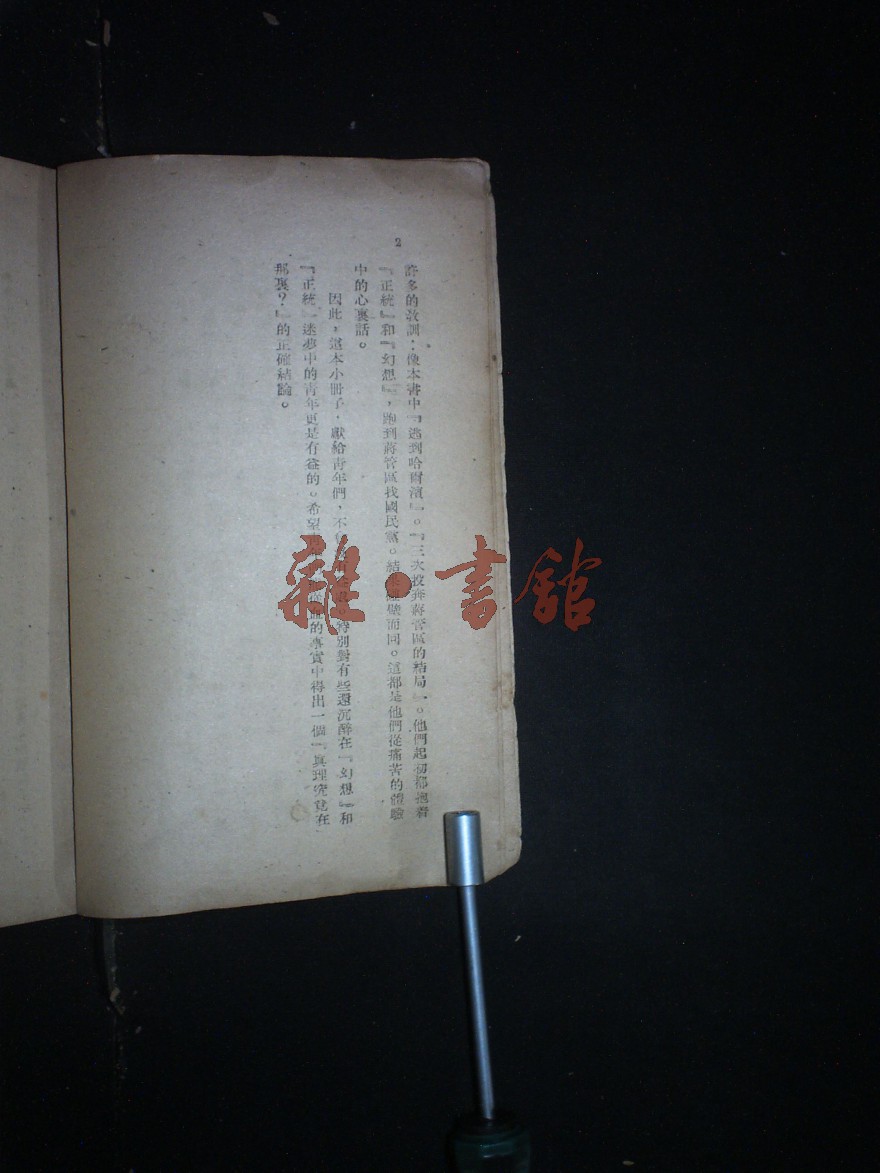 2
許多的教訓：像本書中『逃到哈爾濱』。『三次投奔蔣管區的結局』。他們起初都抱着
『正統』和『幻想』，跑到蔣管區找國民黨。結果碰壁而回。這都是他們從痛苦的體驗
中的心裏話。
因此，這本小冊子，獻給青年們，不 特別對有些還沉醉在『幻想』和
『正統』迷夢中的青年更是有益的。希望 的事實中得出一個『眞理究竟在
那裏？』的正確結論。
雜·書館